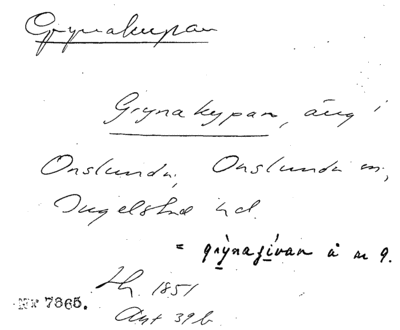 Grynakypan
Grynakypan, äng i
Onslunda, Onslunda sn,
Ingelstad hd.
= å n 9.
Lh. 1851
Nr 7865. Akt 39 b